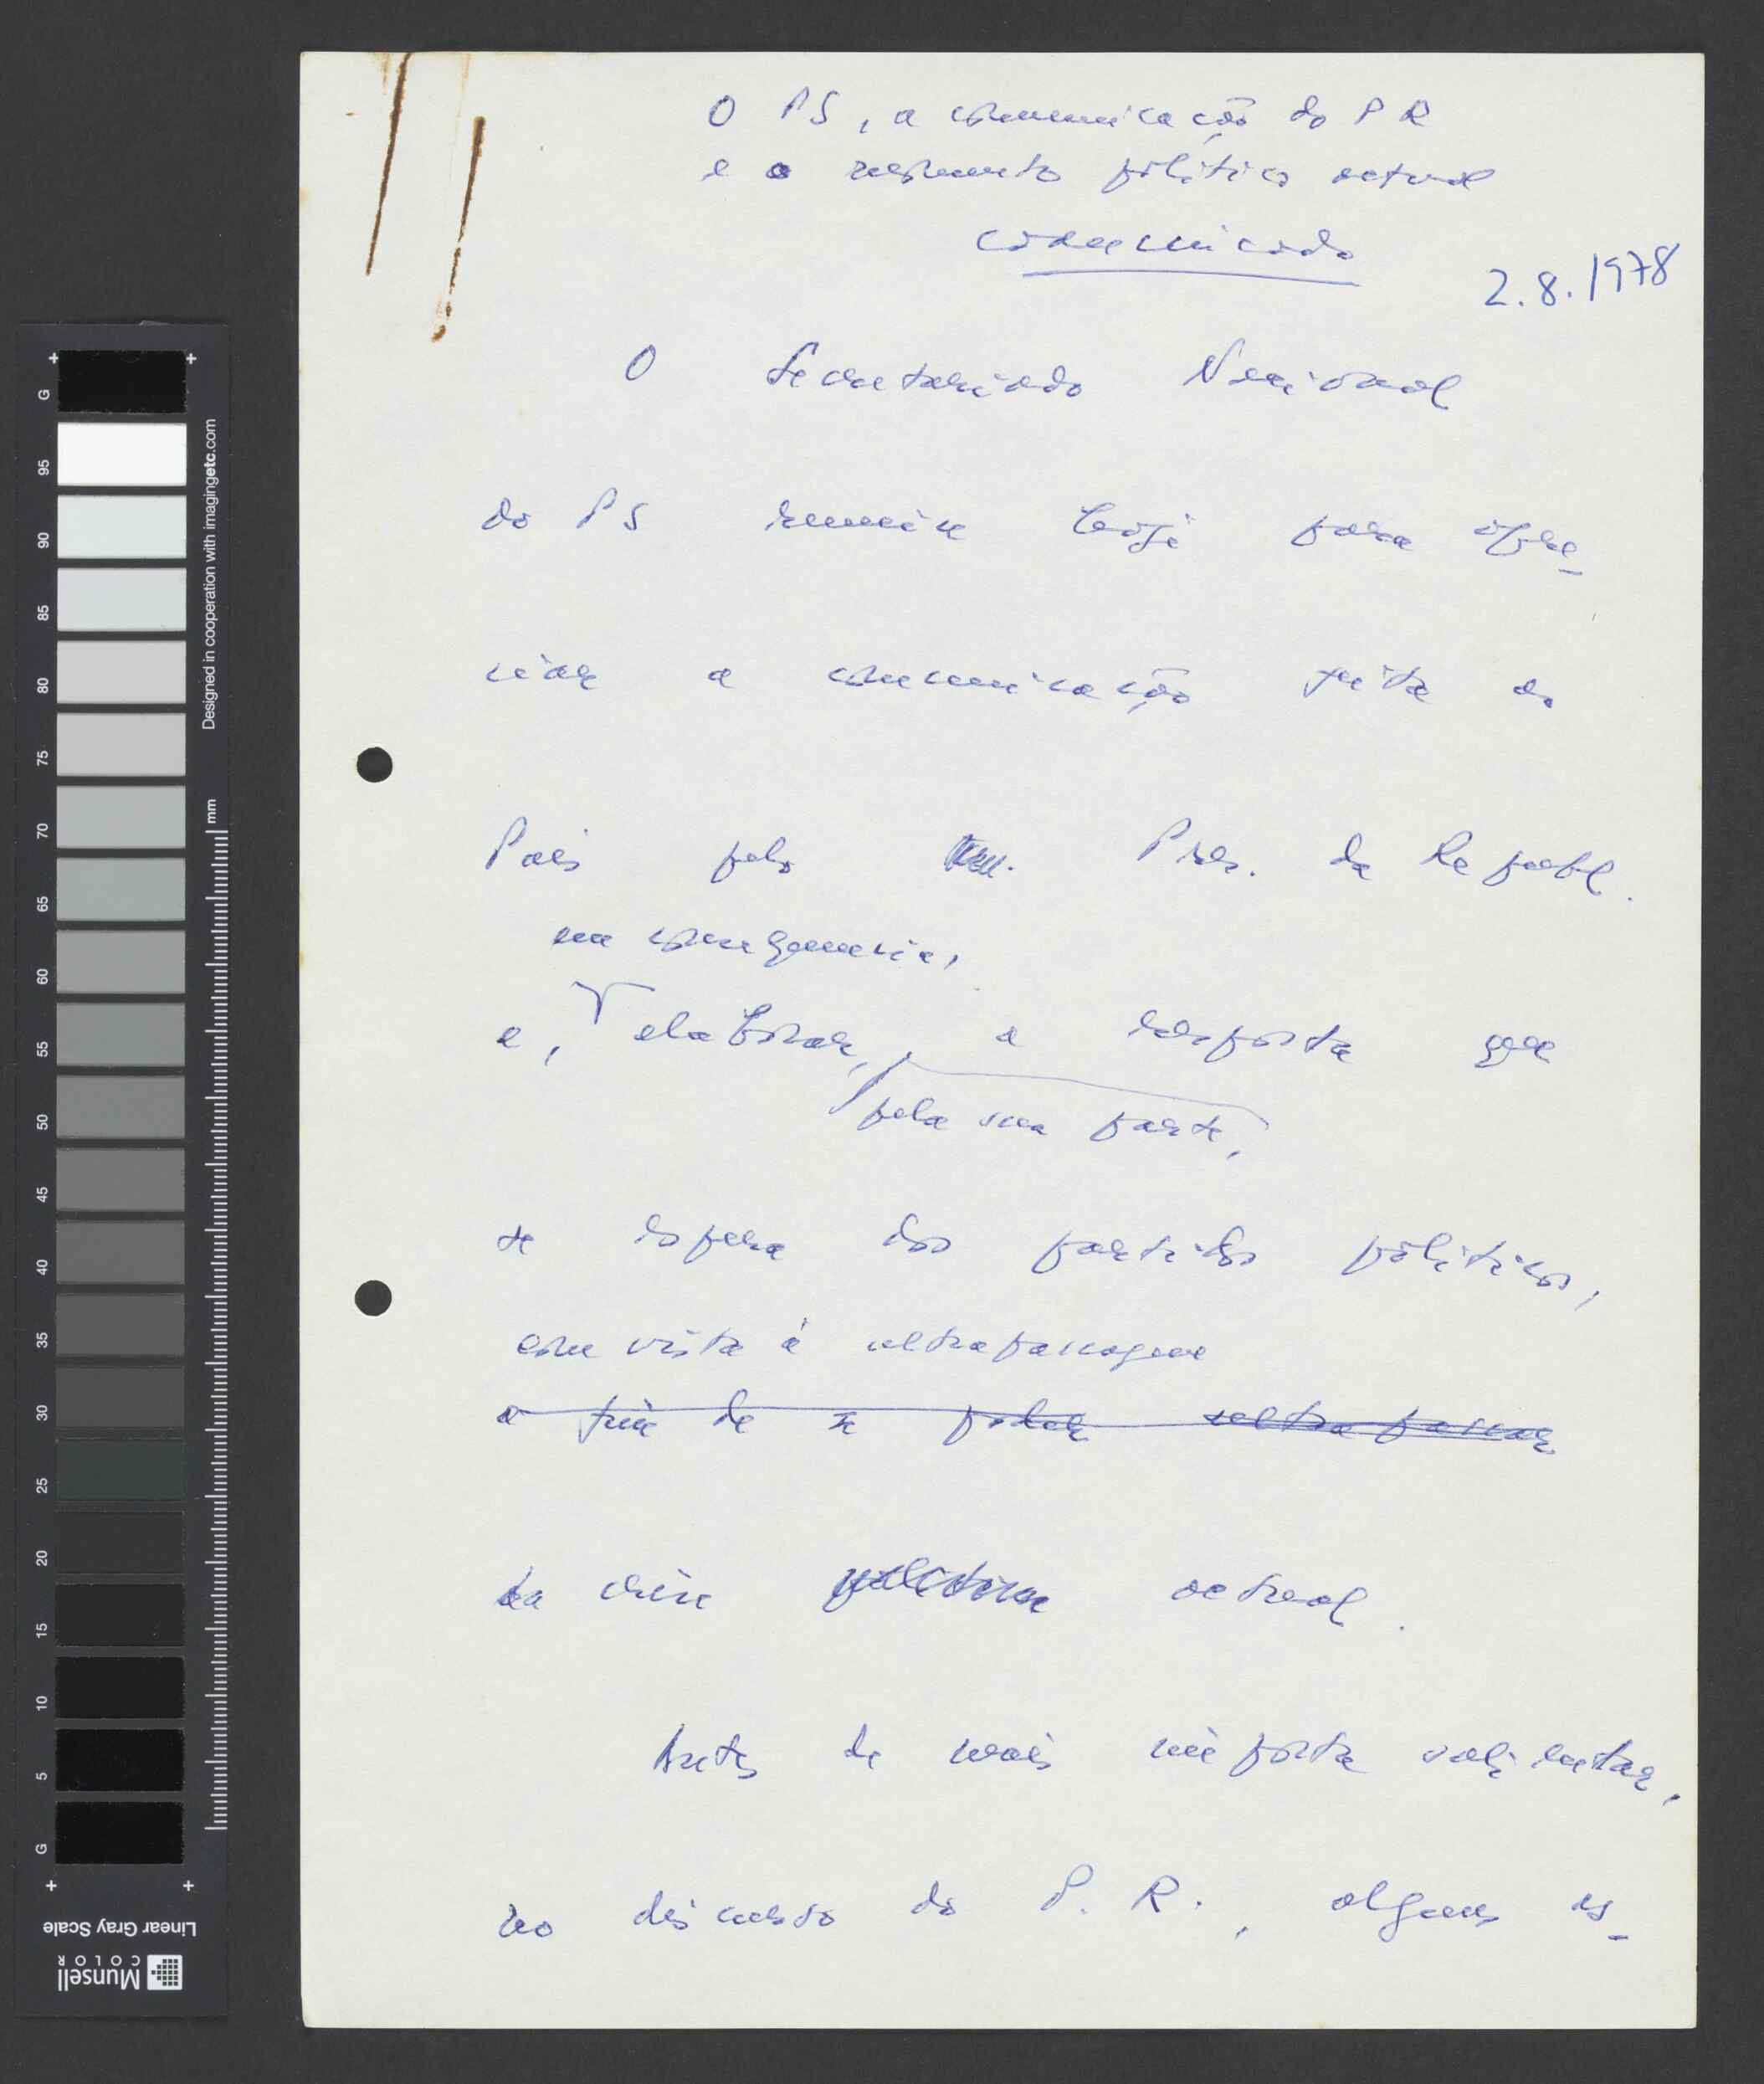 O PS, a comunicação do PR
e o momento político actual
comunicado
2.8.1978
O Secretariado Nacional
do PS reuniu hoje para apre-
ciar a comunicação feita ao
País pelo Pres. da Republ.
em consequencia,
e, elaborar, a resposta que
pela sua parte,
se espera dos partidos políticos,
com vista à ultrapassagem
a fim de se poder ultrapassar
da crise politica actual.
Antes de mais importa salientar,
no discurso do P. R., alguns as-
G
95
90
85
80
75
70
65
60
55
50
45
40
35
30
25
20
15
10
5
G
Designed in cooperation with imagingetc.com
mm
Linear Gray Scale
Munsell
COLOR